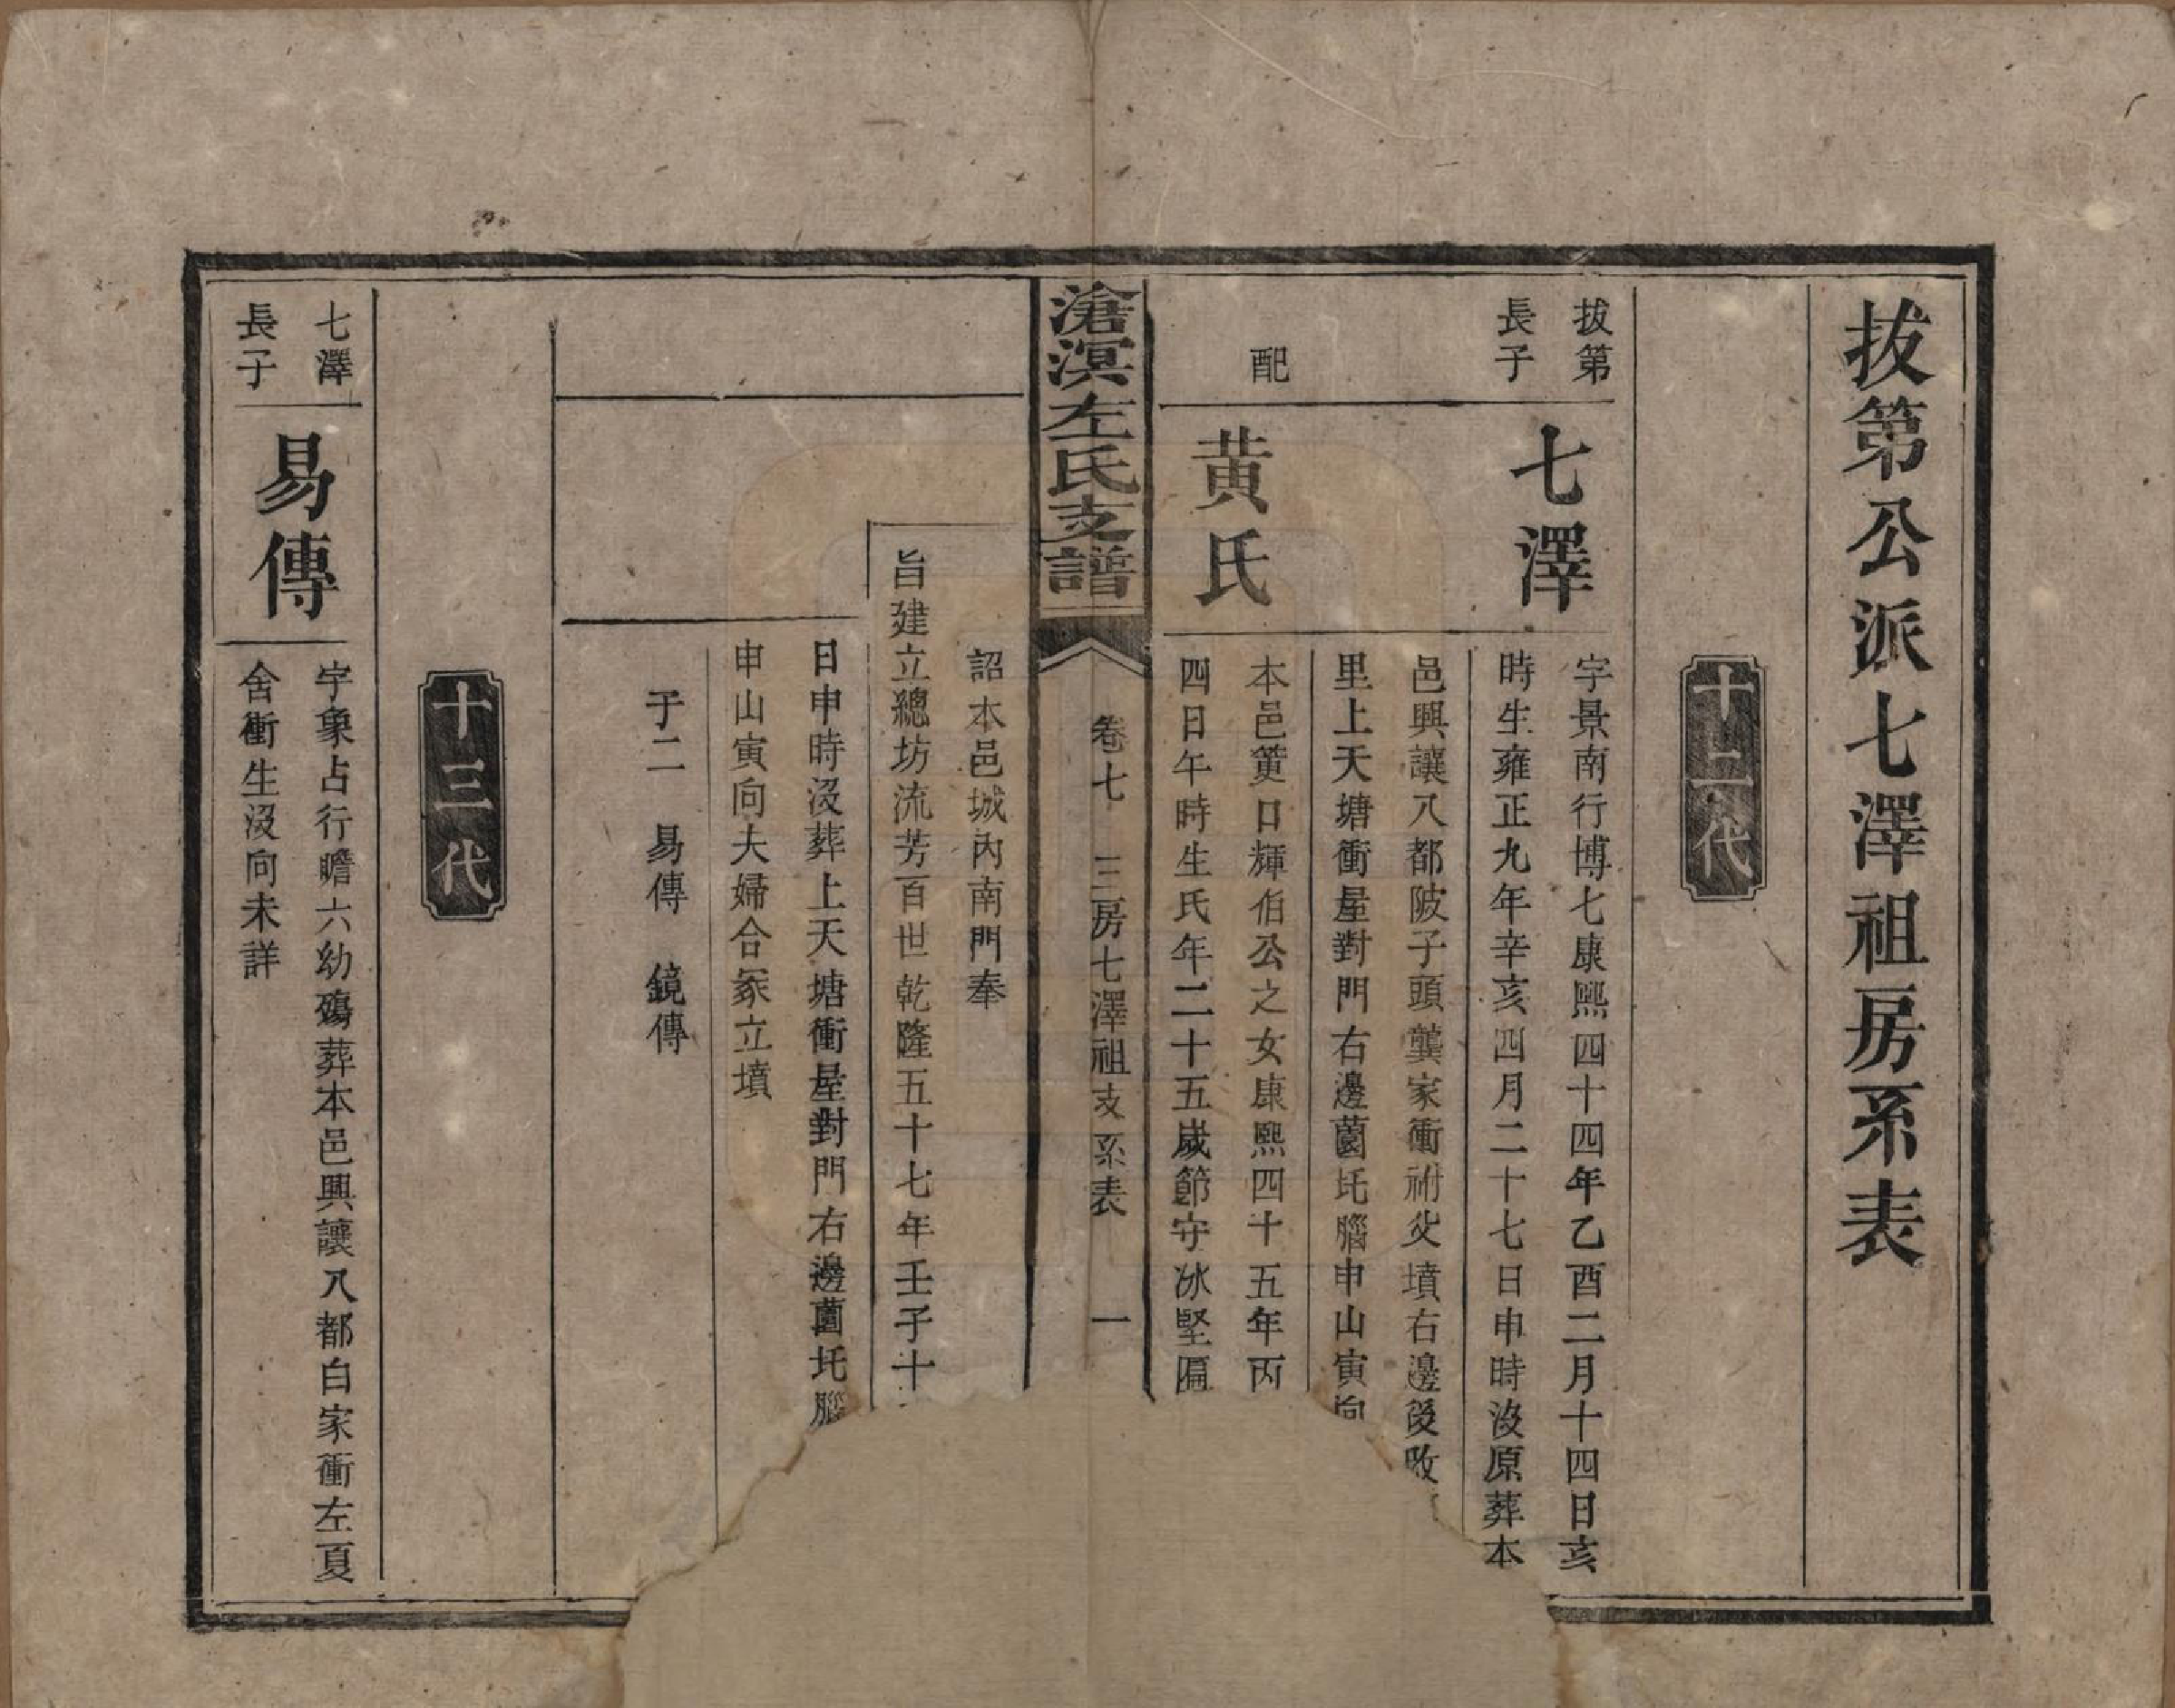 拔第公派七澤祖房系表
十二代
拔第
長子
七澤
字景南行博七康熙四十四年乙酉二月十四日亥
時生雍正九年辛亥四月二十七日申時沒原葬本
邑興讓八都陂子頭龔家衝祔父墳右邊後改
里上天塘衝屋對門右邊薗圫腦申山寅向
配
黃氏
本邑簧口輝伯公之女康熙四十五年丙
四日午時生氏年二十五歲節守冰堅匾
滄溟左氏支譜
卷七 三房七澤祖支系表 一
詔本邑城內南門奉
旨建立總坊流芳百世乾隆五十七年壬子十
日申時沒葬上天塘衝屋對門右邊薗圫腦
申山寅向夫婦合冢立墳
子二 易傳 鏡傳
十三代
七澤
長子
易傳
字象占行瞻六幼殤葬本邑興讓八都白家衝左夏
舍衝生沒向未詳